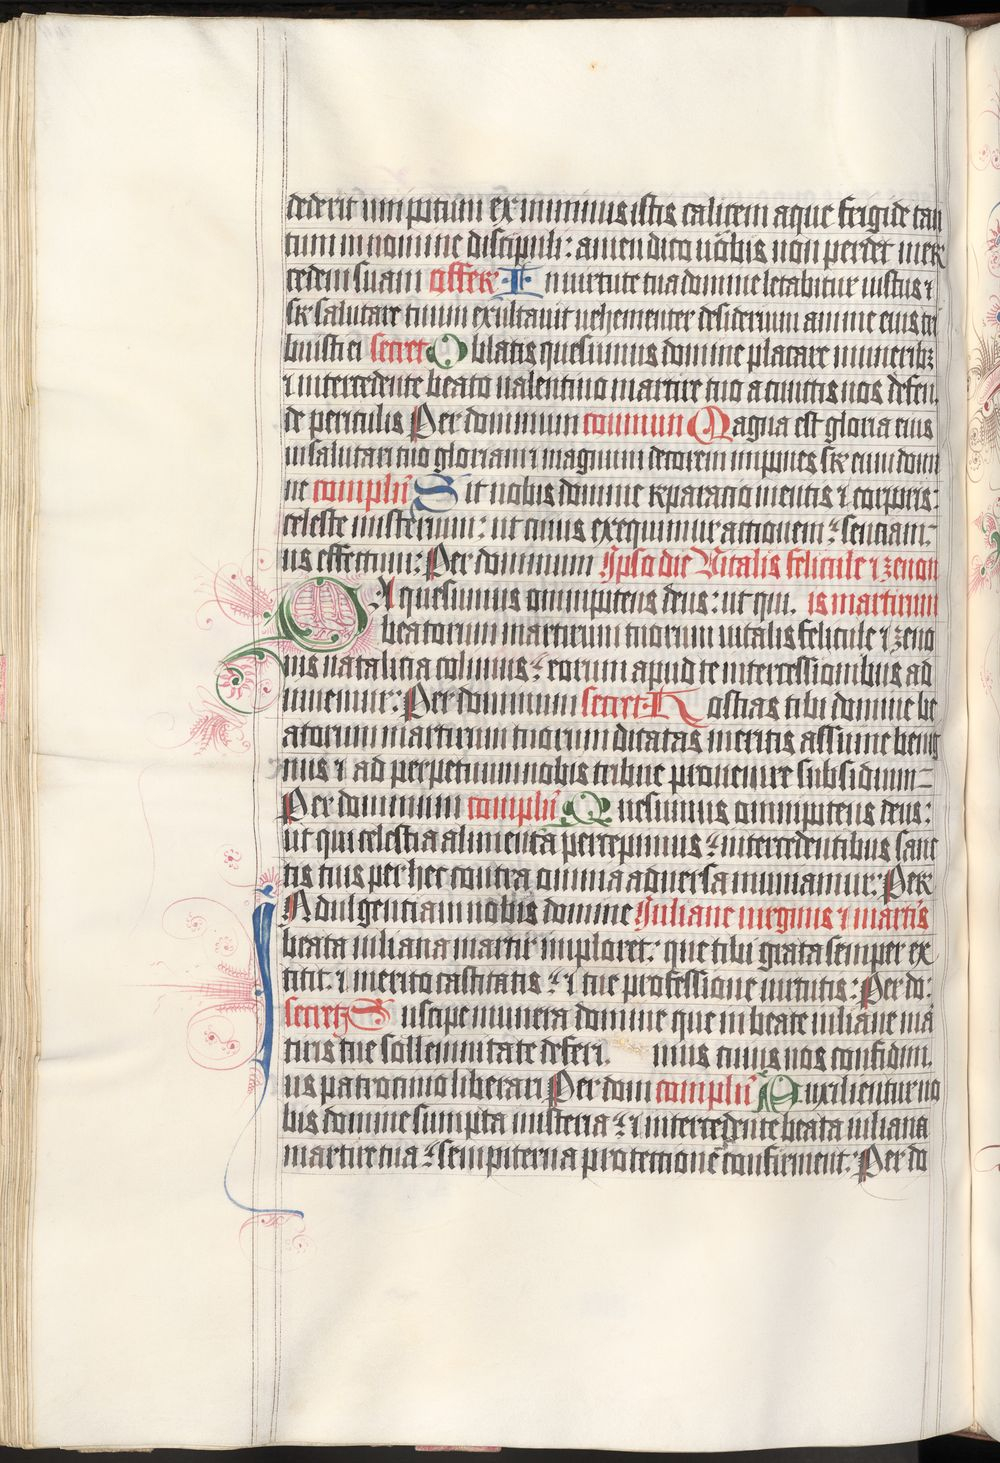 dederit um potum ex minimis istis calicem aque frigide tan
tum in nomine discipuli: amen dico uobis non perdet mer
cedem suam offer In uirtute tua domine letabitur iustus ⁊
sr salutare tuum exultauit uehementer desiderium anime eius tri
buisti ei secret Oblatis quesumus domine placare muneribꝫ
⁊ intercedente beato ualentino martire tuo a cunctis nos defen
de periculis Per dominum commun Magna est gloria eius
in salutari tuo gloriam ⁊ magnum decorem impones sr eum domi
ne complen̄ Sit nobis domine reparatio mentis ⁊ corporis:
celeste misterium: ut cuius exequimur actionem senciam
us effectum: Per dominum Ipso die Vitalis felicule ⁊ zenon
DA quesumus omnipotens deus: ut qui is martirum
beatorum martirum tuorum uitalis felicule ⁊ zeno
nis natalicia colimus eorum apud te intercessionibus ad
iuuemur: Per dominum secret Hostias tibi domine be
atorum martirum tuorum dicatas meritis assume benig
nus ⁊ ad perpetuum nobis tribue prouenire subsidium
Per dominum complen̄ Quesumus omnipotens deus:
ut qui celestia alimenta percepimus intercedentibus sanc
tis tuis per hec contra omnia aduersa muniamur: Per
INdulgenciam nobis domine Iuliane uirginis ⁊ martis
beata iuliana martir imploret: que tibi grata semper ex
titit ⁊ merito castitatis ⁊ tue professione uirtutis: Per do:
secret Suscipe munera domine que in beate iuliane mā
tiris tue sollemnitate deferi mus cuius nos confidim
us patrocinio liberari Per dom complen̄ Auxilientur no
bis domine sumpta misteria ⁊ intercedente beata iuliana
martire tua sempiterna protectione confirment: Per do